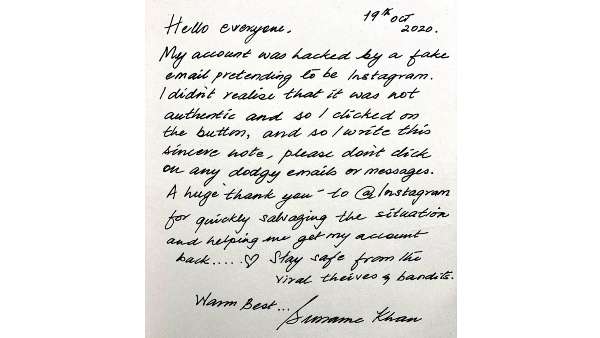 19th OCT
2020.
Hello everyone,
My account was hacked by a fake
email pretending to be Instagram.
I didn't realise that it was not
authentic and so I clicked on
the button, and so I write this
sincere note, please don't click
on any dodgy emails or messages.
A huge thank you - to @Instagram
for quickly salvaging the situation
and helping me get my account
back.....♡ Stay safe from the
viral theives & bandits.
Warm Best...
Sussanne Khan